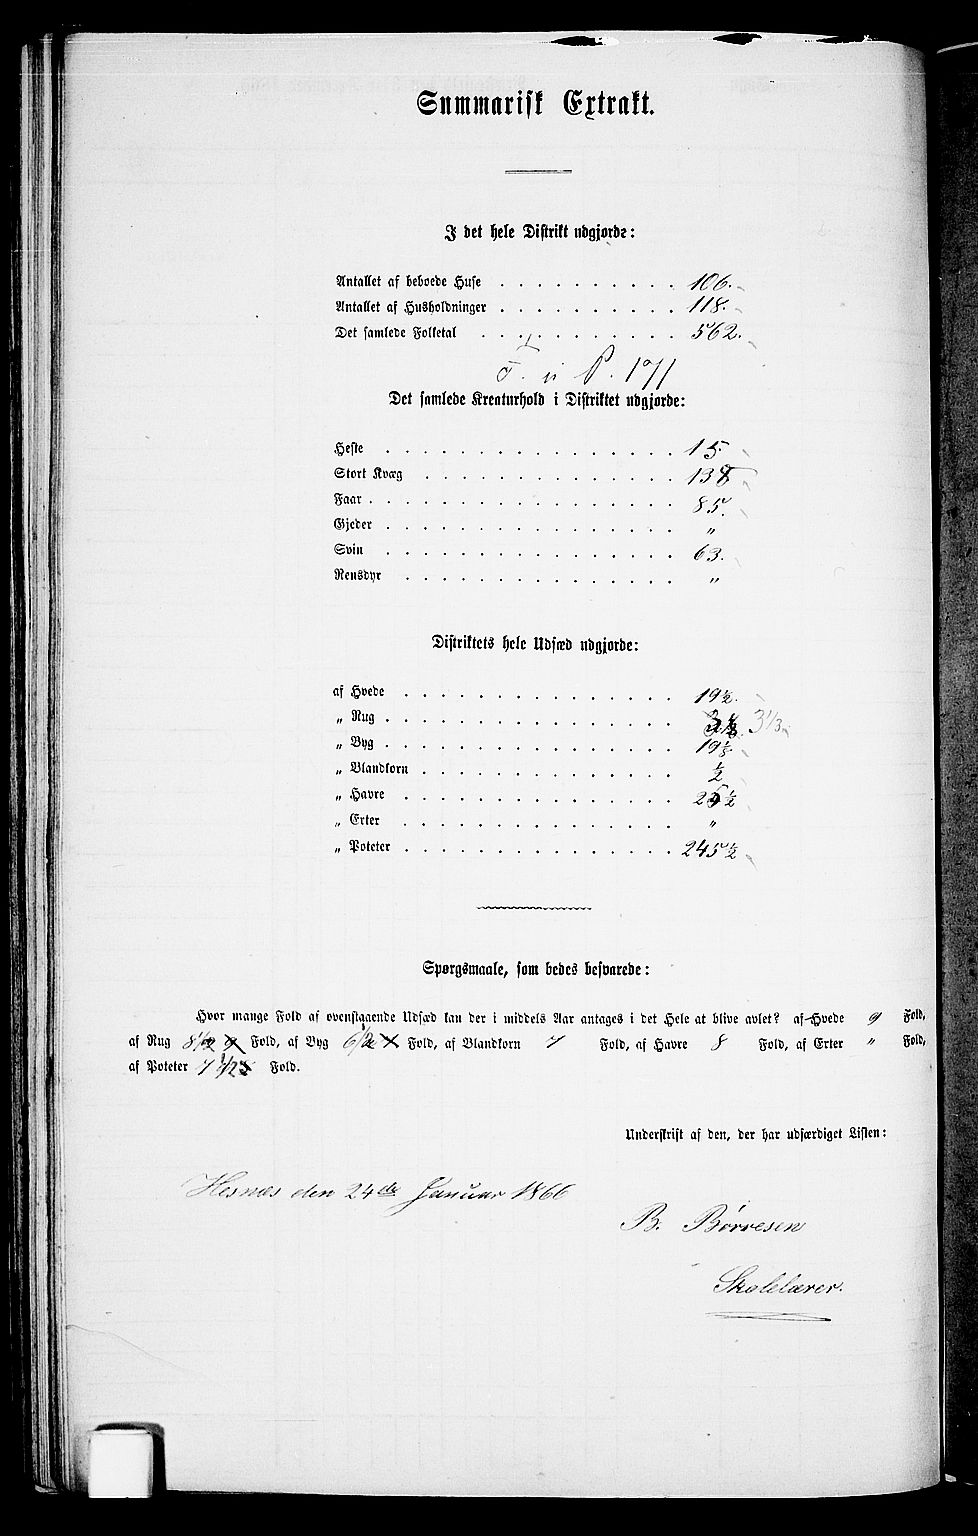 Summarisk Extrakt.
I det hele Distrikt udgjorde:
Antallet af beboede Huse . . . . . . . . . . 106.
Antallet af Husholdninger . . . . . . . . . . 118.
Det samlede Folketal . . . . . . . . . . 562.
T. n P. 171
Det samlede Kreaturhold i Distriktet udgjorde:
Heste . . . . . . . . . . . . . . 15.
Stort Kvæg . . . . . . . . . . . . 138
Faar . . . . . . . . . . . . . . 85.
Gjeder . . . . . . . . . . . . . . "
Svin . . . . . . . . . . . . . . 63.
Rensdyr . . . . . . . . . . . . . "
Distriktets hele Udsæd udgjorde:
af Hvede . . . . . . . . . . . . 19½.
„ Rug . . . . . . . . . . . . 3 1/3
„ Byg . . . . . . . . . . . . 19½
„ Blandkorn . . . . . . . . . . . ½
„ Havre . . . . . . . . . . . . 25½
„ Erter . . . . . . . . . . . . "
„ Poteter . . . . . . . . . . . . 245½
Spørgsmaale, som bedes besvarede:
Hvor mange Fold af ovenstaaende Udsæd kan der i middels Aar antages i det Hele at blive avlet? af Hvede 9 Fold,
af Rug 8½ Fold, af Byg 6½ Fold, af Blandkorn 7 Fold, af Havre 8 Fold, af Erter " Fold,
af Poteter 7½ Fold.
Underskrift af den, der har udfærdiget Listen:
Hesnæs den 24de Januar 1866
B. Børresen
Skolelærer.